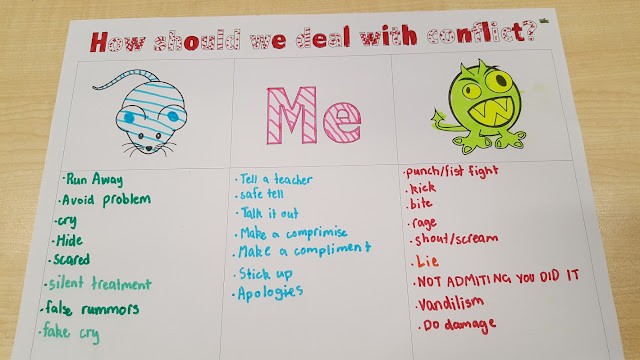 How should we deal with conflict?
Me
·Run Away
·Avoid problem
·cry
·Hide
·scared
·silent treatment
·false rummors
·fake cry
·Tell a teacher
·safe tell
·Talk it out
·Make a comprimise
·Make a compliment
·Stick up
·Apologies
·punch/fist fight
·kick
·bite
·rage
·shout/scream
·Lie
·NOT ADMITING YOU DID IT
·Vandilism
·DO damage